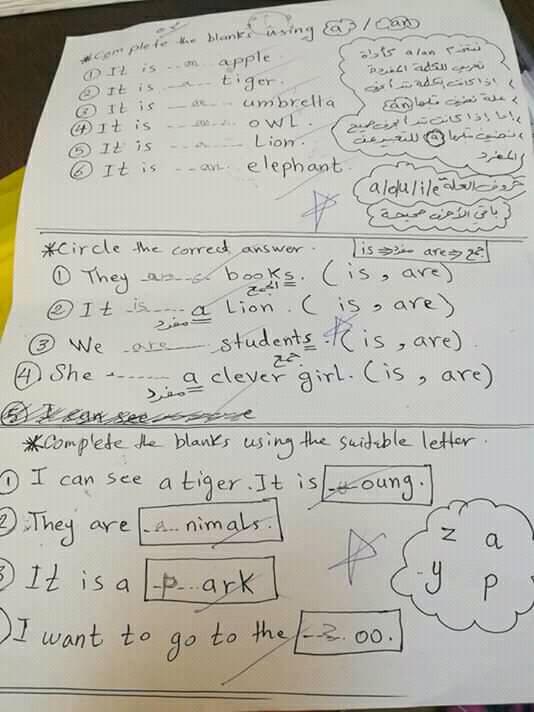 *Complete the blanks using (a) / (an)
① It is --an-- apple.
② It is --a-- tiger.
③ It is --an-- umbrella
④ It is --an-- owl.
⑤ It is --a-- Lion.
⑥ It is --an-- elephant.
نستخدم a/an كأداة
للكلمة المفردة
اذا كانت الكلمة تبدأ بحرف
علة نضيف قبلها (an)
أما إذا كانت تبدأ بحرف صحيح
نضيف قبلها (a) للتعبير عن
المفرد
حروف العلة a/o/u/i/e
باقي الأحرف صحيحة
*Circle the correct answer.
is ⇒ مفرد are ⇒ جمع
① They are books. (is , are)
الجمع
② It is a Lion. ( is , are)
مفرد
③ We are students. (is , are).
جمع
④ She ------ a clever girl. (is , are)
مفرد
⑤ I can see
*Complete the blanks using the suitable letter.
① I can see a tiger. It is --y-oung.
② They are -a--nimals.
③ It is a -p--ark
I want to go to the --z-oo.
z a
y p